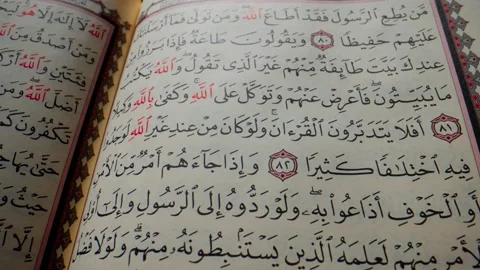 مَّن يُطِعِ ٱلرَّسُولَ فَقَدْ أَطَاعَ ٱللَّهَ وَمَن تَوَلَّىٰ فَمَآ
عَلَيْهِمْ حَفِيظًا ٨٠ وَيَقُولُونَ طَاعَةٌ فَإِذَا بَرَزُوا۟
عِندِكَ بَيَّتَ طَآئِفَةٌ مِّنْهُمْ غَيْرَ ٱلَّذِى تَقُولُ وَٱللَّهُ يَكْتُبُ
مَا يُبَيِّتُونَ فَأَعْرِضْ عَنْهُمْ وَتَوَكَّلْ عَلَى ٱللَّهِ وَكَفَىٰ بِٱللَّهِ وَكِيلًا
٨١ أَفَلَا يَتَدَبَّرُونَ ٱلْقُرْءَانَ وَلَوْ كَانَ مِنْ عِندِ غَيْرِ ٱللَّهِ لَوَجَدُوا۟
فِيهِ ٱخْتِلَـٰفًا كَثِيرًا ٨٢ وَإِذَا جَآءَهُمْ أَمْرٌ مِّنَ ٱلْأَمْنِ
أَوِ ٱلْخَوْفِ أَذَاعُوا۟ بِهِۦ وَلَوْ رَدُّوهُ إِلَى ٱلرَّسُولِ وَإِلَىٰٓ أُو۟لِى
ٱلْأَمْرِ مِنْهُمْ لَعَلِمَهُ ٱلَّذِينَ يَسْتَنۢبِطُونَهُۥ مِنْهُمْ وَلَوْلَا فَضْلُ
ٱللَّهُ لَآ إِلَـٰهَ إِلَّا هُوَ
وَمَنْ أَصْدَقُ مِنَ ٱللَّهِ
فِئَتَيْنِ وَٱللَّهُ
أَضَلَّ ٱللَّهُ وَمَن
تَكْفُرُونَ كَمَا
حَتَّىٰ
حَيْثُ
إِلَّا